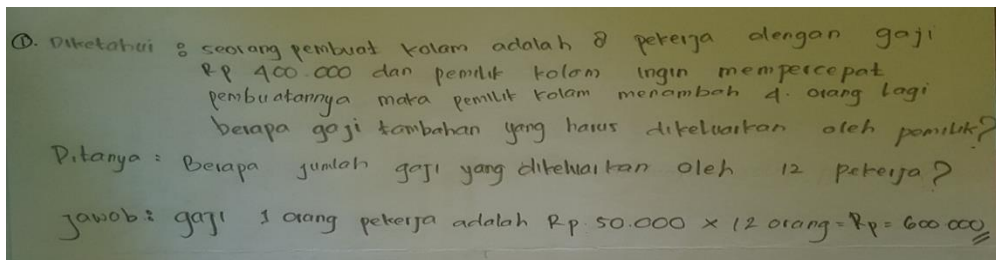 ①. Diketahui : seorang pembuat kolam adalah 8 pekerja dengan gaji
Rp 400.000 dan pemilik kolam ingin mempercepat
pembuatannya maka pemilik kolam menambah 4. orang lagi
berapa gaji tambahan yang harus dikeluarkan oleh pemilik?
Ditanya : Berapa jumlah gaji yang dikeluarkan oleh 12 pekerja?
Jawab : gaji 1 orang pekerja adalah Rp 50.000 × 12 orang = Rp = 600 000